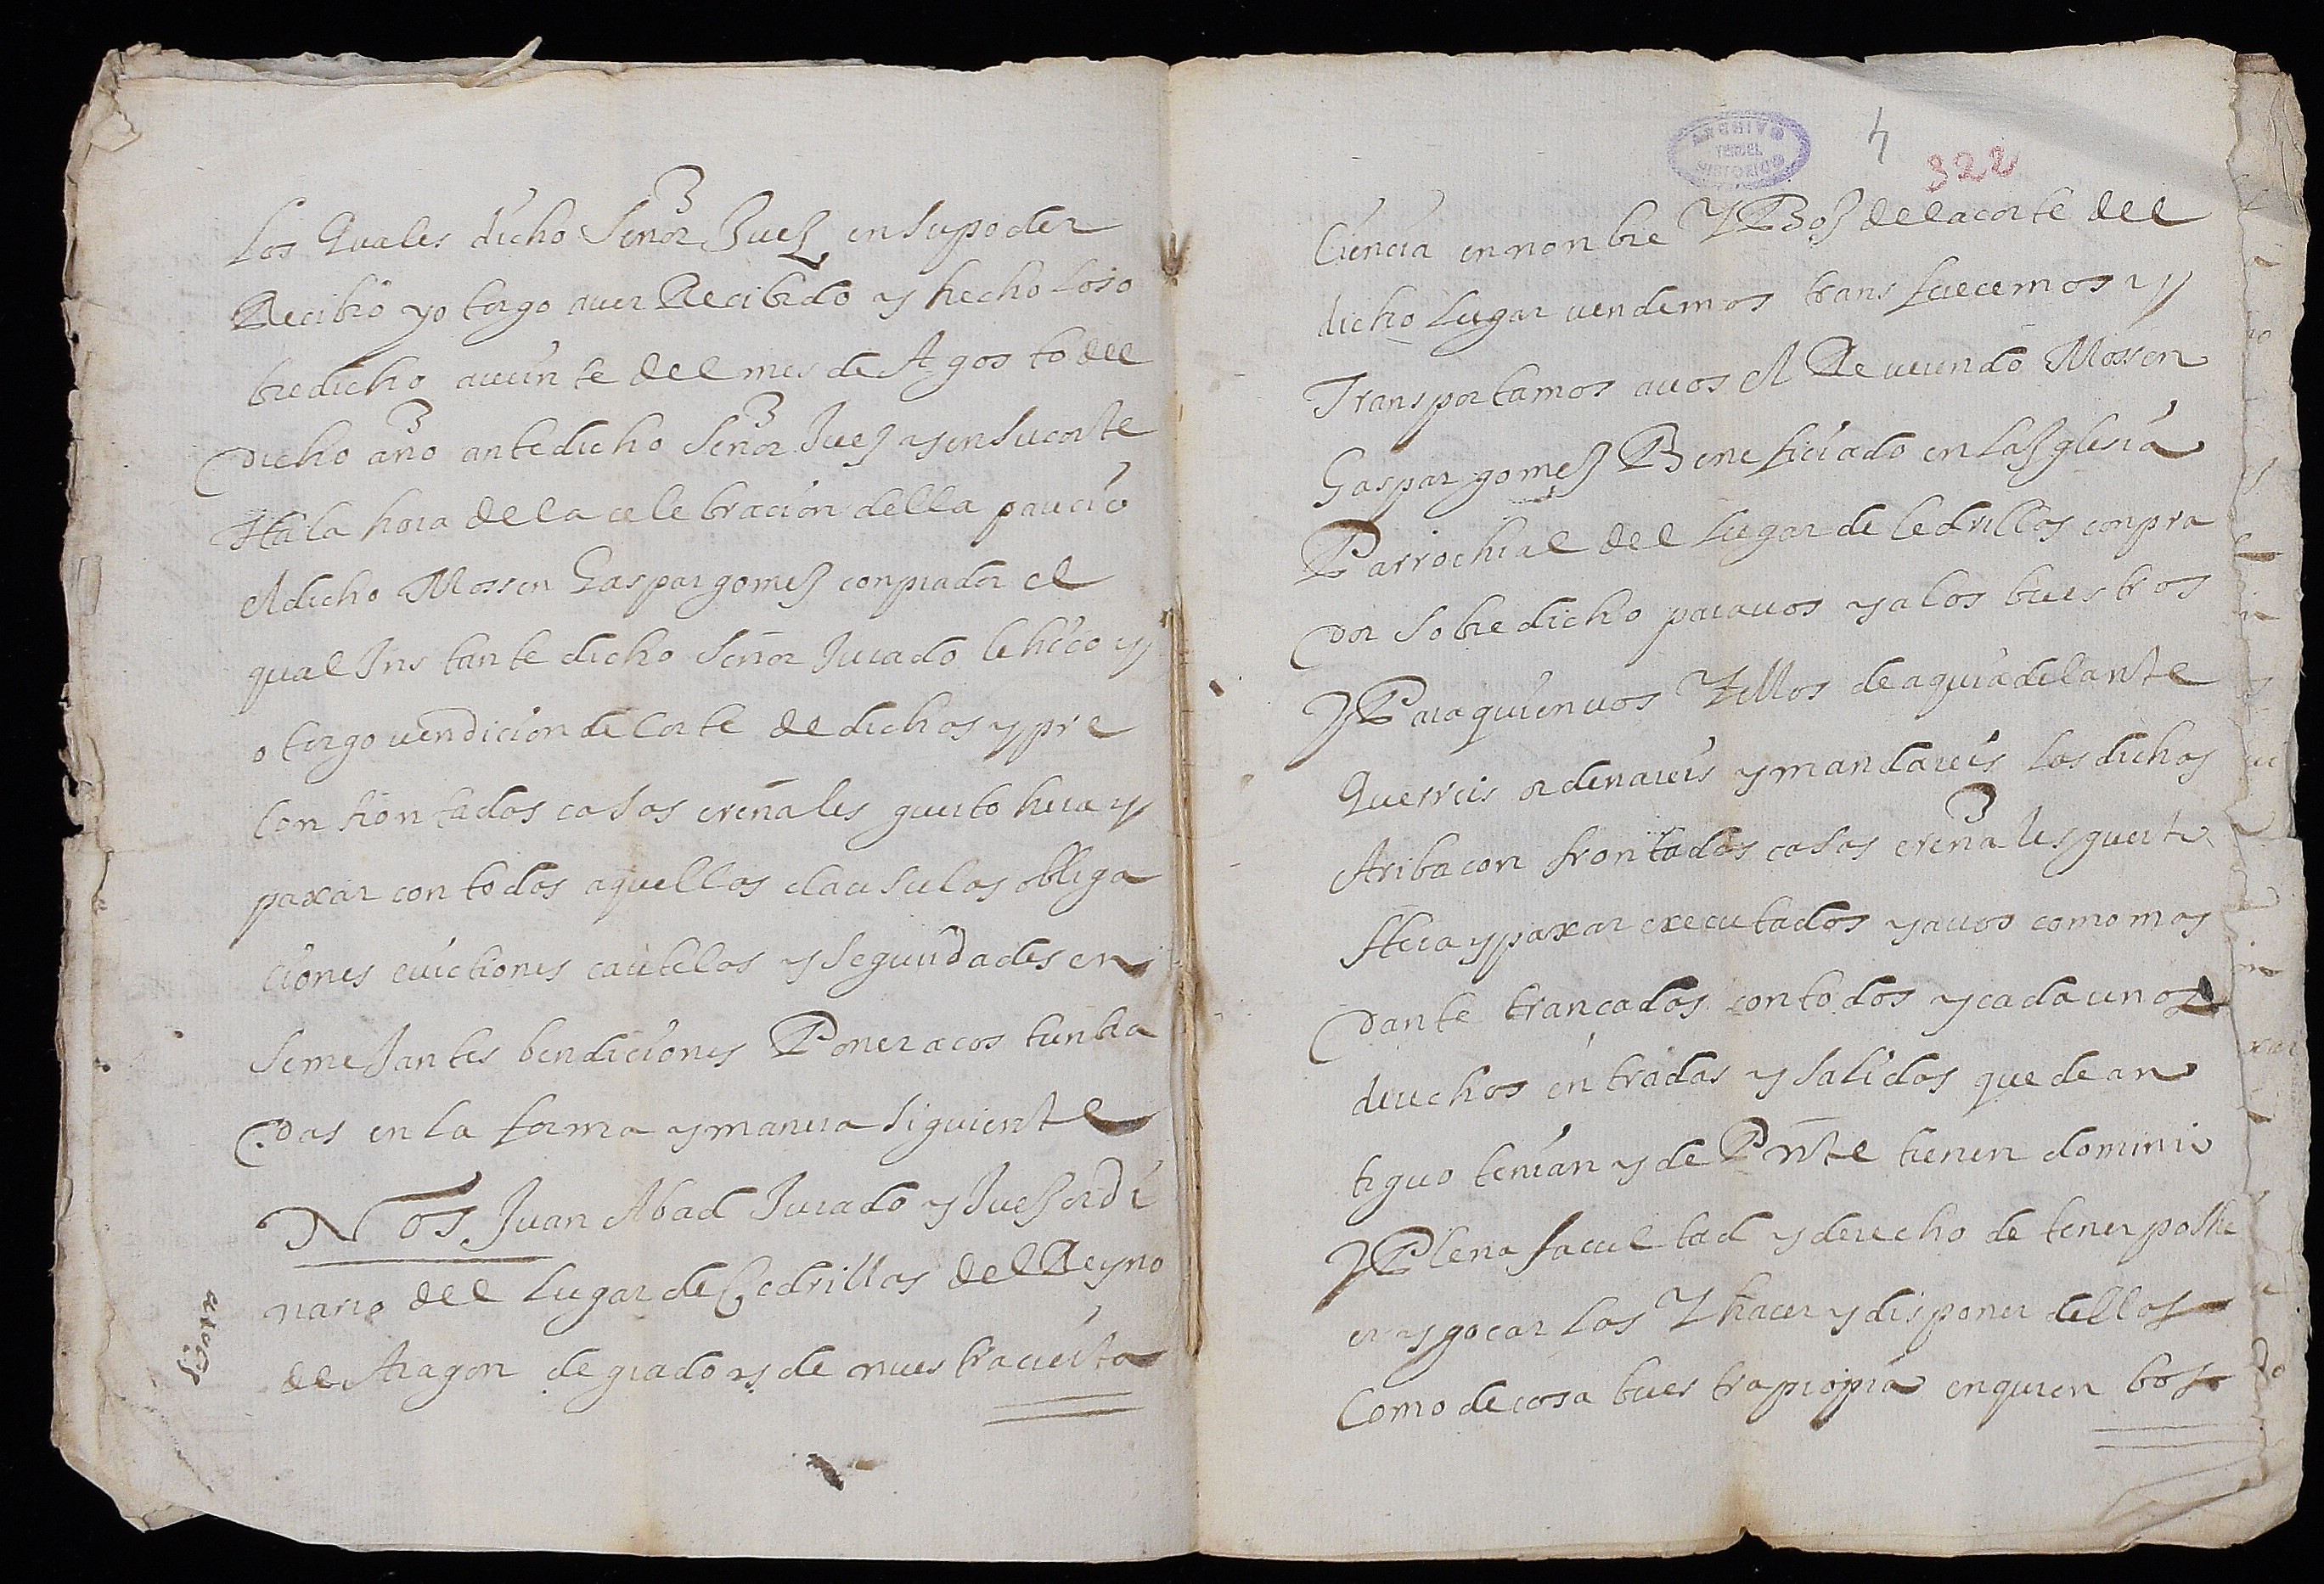 Los Quales dicho Señor Juez en su poder
Recibio y o torgo auer Recibido y hecho lo so
bredicho a vinte del mes de Agosto del
dicho año ante dicho Señor Juez y en su corte
Ha la hora de la celebracion della parecio
el dicho Mossen Gaspar gomez conprador el
qual Instante dicho Señor Jurado le hico y
o torgo vendicion de Corte de dichas y pre
confrontadas casas ereñales guerto hera y
paxar con todas aquellas clausulas obliga
ciones euictiones cautelas y seguridades en
semejantes bendiciones Poner acostunbra
das en la forma y manera siguiente
Nos Juan Abad Jurado y Juez ordi
nario del Lugar de Cedrillas del Reyno
de Aragon de grado y de nuestra cierta
ARCHIVO
TERUEL
HISTORICO
4
322
Ciencia en nonbre Y Boz de la corte del
dicho Lugar vendemos transferecemos y
Transportamos a uos el Reuerendo Mossen
Gaspar gomez Beneficiado en la Iglesia
Parrochial del Lugar de Cedrillas conpra
dor sobredicho para uos y a los buestros
Y Para quien uos Y ellos de aqui adelante
Querreis ordenareis y mandareis las dichas
Ariba confrontadas casas ereñales guerto
Hera y paxar executados y a uos como mas
dante trancadas con todos y cada unos
derechos entradas y salidas que de an
tiguo tenian y de Pnte tienen dominio
Y Plena facultad y derecho de tener posse
er y gocar las Y hacer y disponer dellas
Como de cosa buestra propia en quien bos